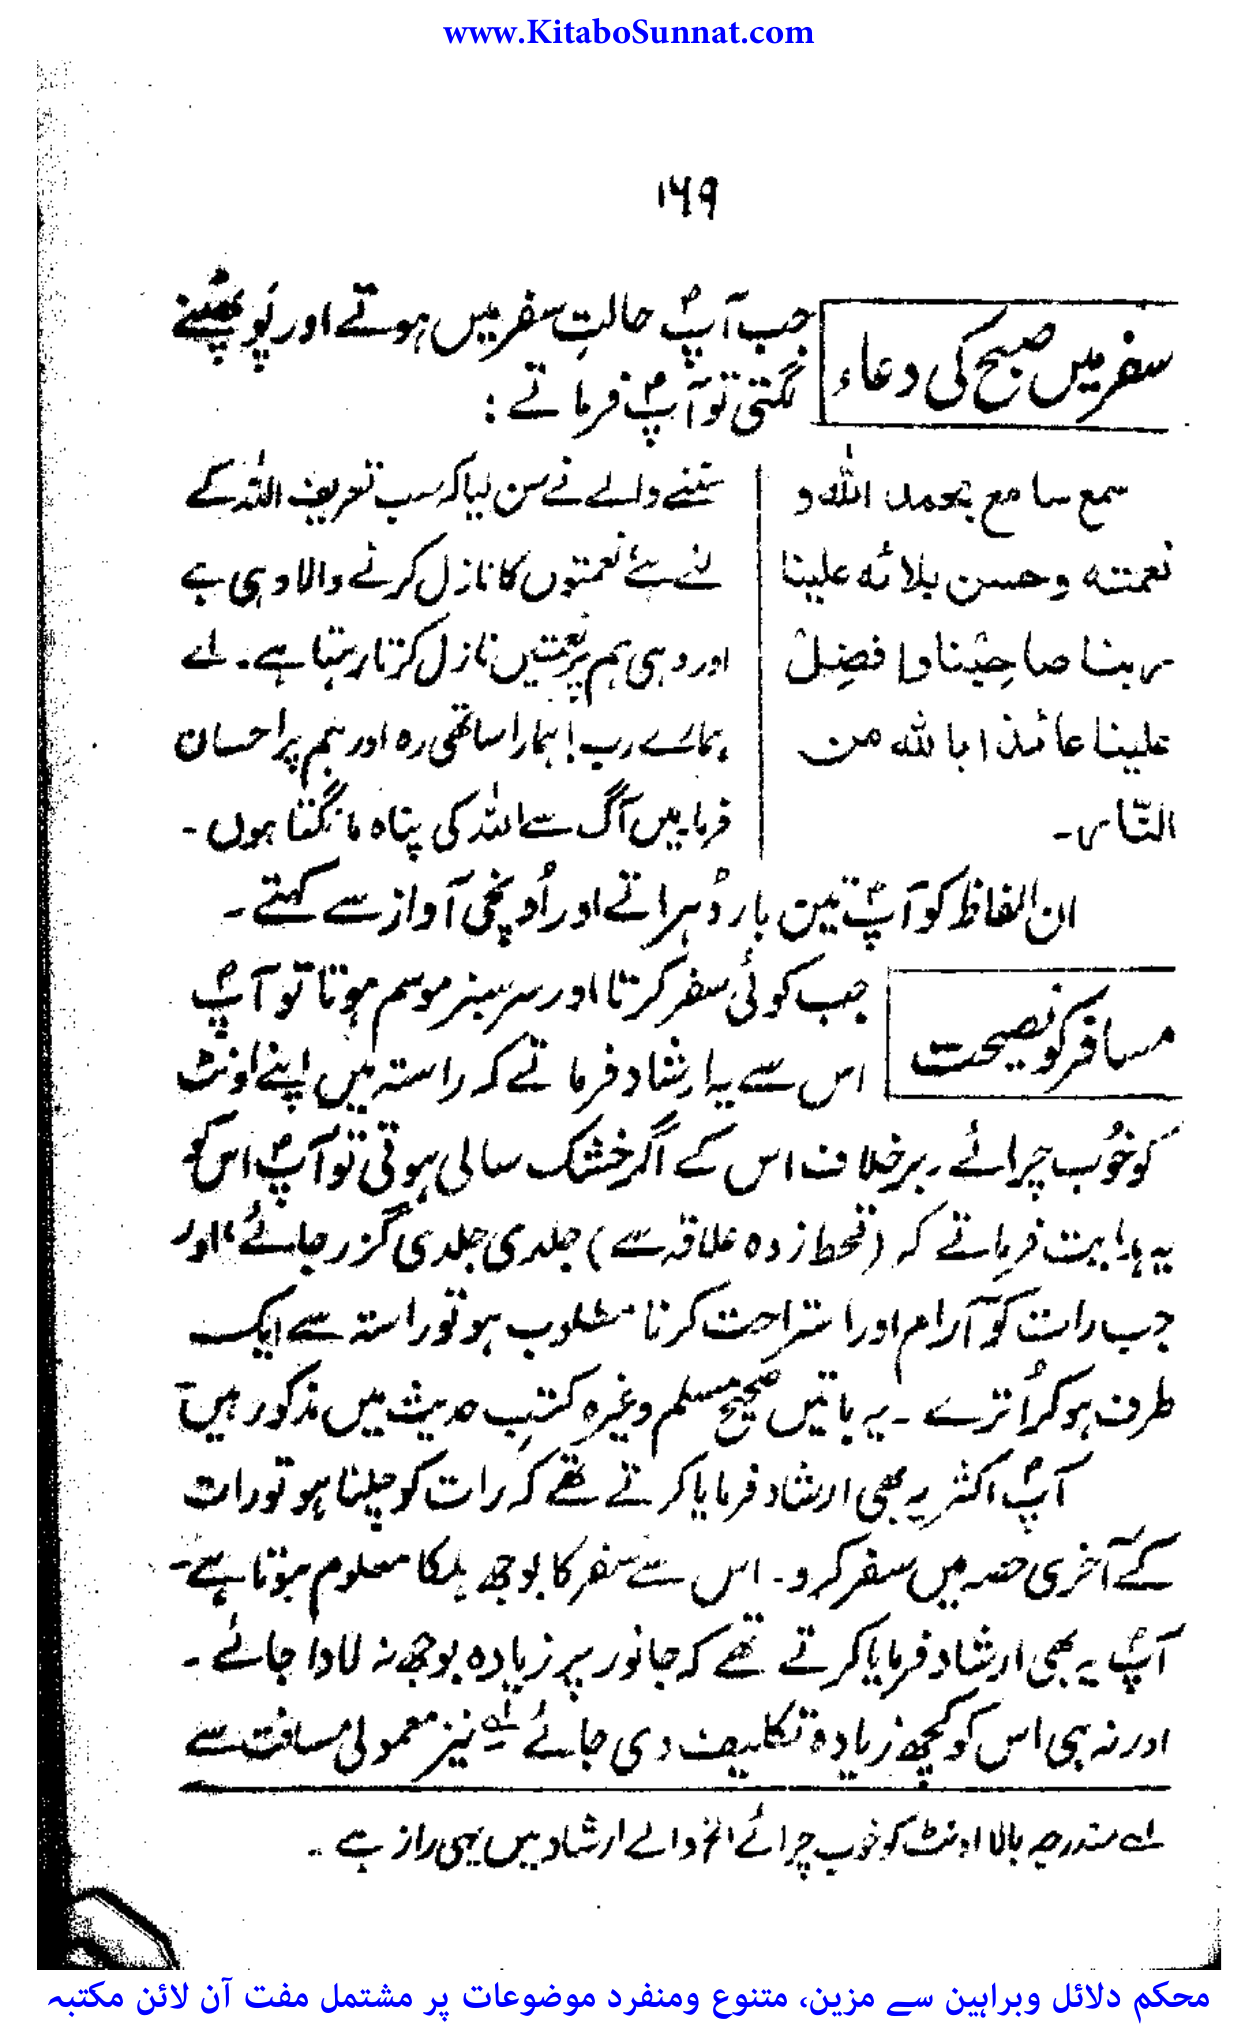 www.KitaboSunnat.com
۱۶۹
سفر میں صبح کی دعاء
جب آپؐ حالتِ سفر میں ہوتے اور پَو پھٹنے
لگتی تو آپؐ فرماتے :
سمع سامع بحمد اللہ و
نعمتہ وحسن بلائہ علینا
ربنا صاحِبْنا وافضِلْ
علینا عائذا باللہ من
النّار۔
سننے والے نے سن لیا کہ سب تعریف اللہ کے
لئے ہے نعمتوں کا نازل کرنے والا وہی ہے
اور وہی ہم پر نعمتیں نازل کرتا رہتا ہے۔ اے
ہمارے رب! ہمارا ساتھی رہ اور ہم پر احسان
فرما۔ میں آگ سے اللہ کی پناہ مانگتا ہوں۔
ان الفاظ کو آپؐ تین بار دُہراتے اور اُونچی آواز سے کہتے۔
مسافر کو نصیحت
جب کوئی سفر کرتا اور سرسبز موسم ہوتا تو آپؐ
اس سے یہ ارشاد فرماتے کہ راستہ میں اپنے اونٹ
کو خُوب چرائے۔ برخلاف اس کے اگر خشک سالی ہوتی تو آپؐ اس کو
یہ ہدایت فرماتے کہ (قحط زدہ علاقہ سے) جلدی جلدی گزر جائے، اور
جب رات کو آرام اور استراحت کرنا مطلوب ہو تو راستہ سے ایک
طرف ہو کر اُترے۔ یہ باتیں صحیح مسلم وغیرہ کتبِ حدیث میں مذکور ہیں
آپؐ اکثر یہ بھی ارشاد فرمایا کرتے تھے کہ رات کو چلنا ہو تو رات
کے آخری حصہ میں سفر کرو۔ اس سے سفر کا بوجھ ہلکا معلوم ہوتا ہے۔
آپؐ یہ بھی ارشاد فرمایا کرتے تھے کہ جانور پر زیادہ بوجھ نہ لادا جائے۔
اور نہ ہی اس کو کچھ زیادہ تکلیف دی جائے لہ نیز معمولی مسافت سے
لہ مندرجہ بالا اونٹ کو خوب چرائے الخ والے ارشاد میں یہی راز ہے۔
محکم دلائل وبراہین سے مزین، متنوع ومنفرد موضوعات پر مشتمل مفت آن لائن مکتبہ